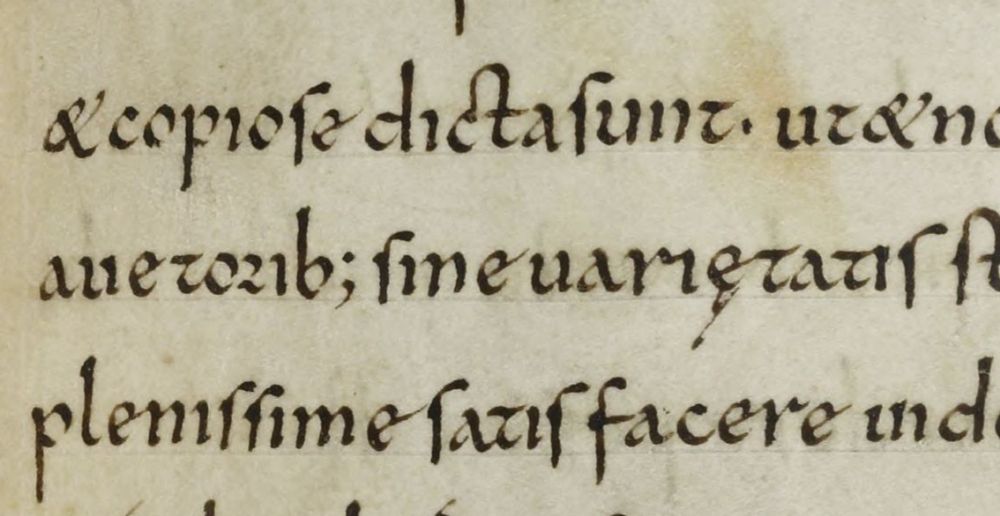 & copiose dicta sunt. ut & n
auetorib; sine uarię tatis st
plenissime satis facere in d